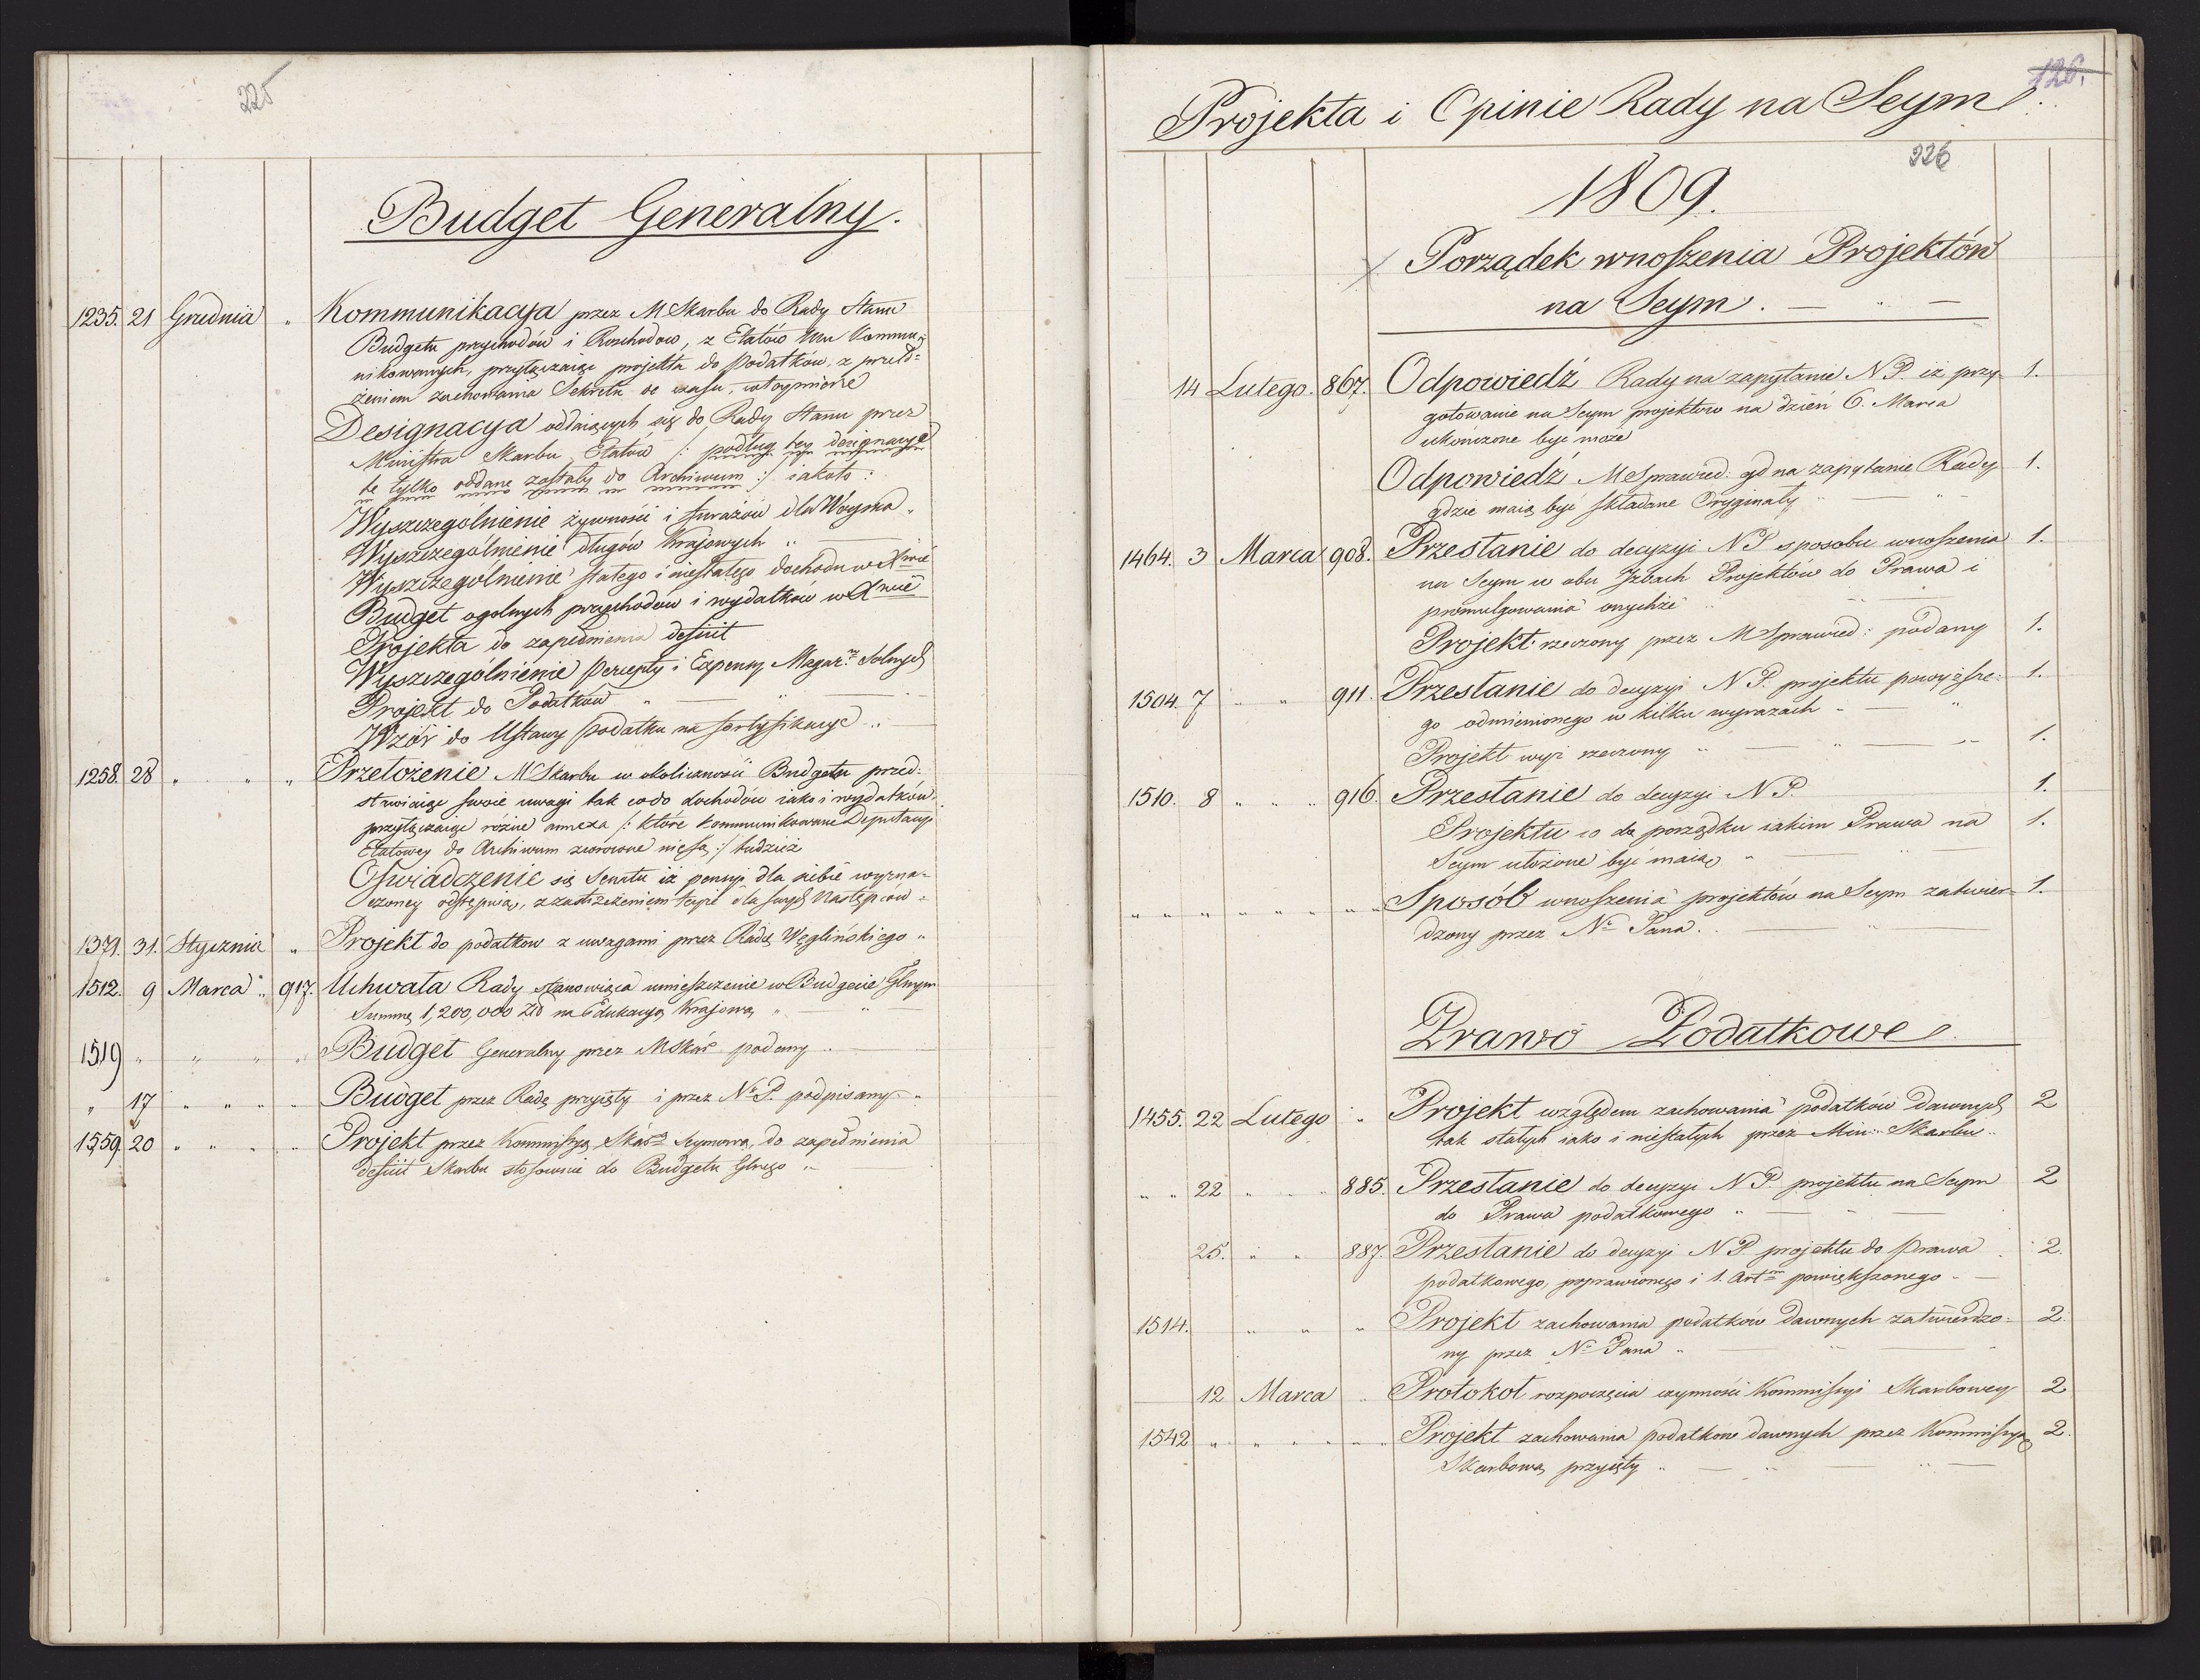 225
Budget Generalny.
1235. 21 Grudnia " Kommunikacya przez M Skarbu do Rady Stanu
Budgetu przychodów i Rozchodow, z Etatów Mu Kommu=
nikowanych, przyłączaiąc projekta do Podatków, z przeło=
żeniem zachowania Sekretu do czasu,
Designacya oddaiących się do Rady Stanu przez
Ministra Skarbu Etatów /: podług tey designacye
te tylko oddane zostały do Archiwum :/ iakoto:
Wyszczegolnienie żywności i furażów dla Woyska "
Wyszczegolnienie długów Krajowych "
Wyszczegolnienie stałego i niestałego dochodu w Xtwie
Budget ogolnych przychodów i wydatków w Xtwie
Projekta do zapełnienia deficit
Wyszczegolnienie Percepty i Expensy Magaz: Solnych
Projekt do Podatków "
Wzór do Ustawy podatku na fortyfikacye "
1258. 28 " " " Przełożenie M Skarbu w okoliczności Budgetu przed=
stawiaiąc swoie uwagi tak co do dochodów iako i wydatków.
przyłączaiąc rózne annexa /: które kommunikowane Deputacyi
Etatowey do Archiwum zwrócone nie są :/ tudzież
Oświadczenie się Senatu iż pensyi dla siebie wyzna=
czoney odstępuią, z zastrzeżeniem teyże dla swych Następców =
1371. 31. Stycznia " Projekt do podatkow z uwagami przez Radę Węglińskiego "
1512. 9 Marca " 917. Uchwała Rady stanowiąca umieszczenie w Budgecie Glnym
Summę 1,200,000 Złd na Edukacyę Krajową "
1519 " " " " Budget Generalny przez M Skar podany "
" 17 " " " " Budget przez Radę przyięty i przez No P. podpisany "
1559. 20 " " " " Projekt przez Kommissyą Skarą Seymową, do zapełnienia
deficit Skarbu stosownie do Budgetu Glnego "
126.
Projekta i Opinie Rady na Seym.
226
1809.
Porządek wnoszenia Projektów
na Seym. — " —
14 Lutego. 867. Odpowiedź Rady na zapytanie N P. iż przy 1.
gotowanie na Seym projektow na dzień 6. Marca
ukończone być może
Odpowiedź M Sprawied: gd na zapytanie Rady 1.
gdzie maią być składane Oryginały "
1464. 3 Marca 908. Przesłanie do decyzyi N P sposobu wnoszenia 1.
na Seym w obu Izbach Projektów do Prawa i
promulgowania onychże "
Projekt rzeczony przez M Sprawied: podany 1.
1504. 7 " " 911. Przesłanie do decyzyi N P. projektu powyższe= 1.
go odmienionego w kilku wyrazach "
Projekt wyż rzeczony " 1.
1510. 8 " " " 916. Przesłanie do decyzyi N P. 1.
Projektu co do porządku iakim Prawa na 1.
Seym ułożone być maią "
" " " " " " " " Sposób wnoszenia projektów na Seym zatwier= 1.
dzony przez No Pana.
Prawo Podatkowe
1455. 22 Lutego " Projekt względem zachowania podatków dawnych 2
tak stałych iako i niestałych przez Min: Skarbu "
" " 22 " " " 885. Przesłanie do decyzyi N P. projektu na Seym 2
do Prawa podatkowego "
25. " " 887. Przesłanie do decyzyi N P projektu do Prawa 2.
podatkowego, poprawionego i 1. Artm powiększonego -
1514. " " " Projekt zachowania podatków dawnych zatwierdzo= 2.
ny przez No Pana "
12 Marca " Protokół rozpoczęcia czynności Kommissyi Skarbowey 2
1542 " " " " " " Projekt zachowania podatkow dawnych przez Kommissyą 2.
Skarbową przyięty "